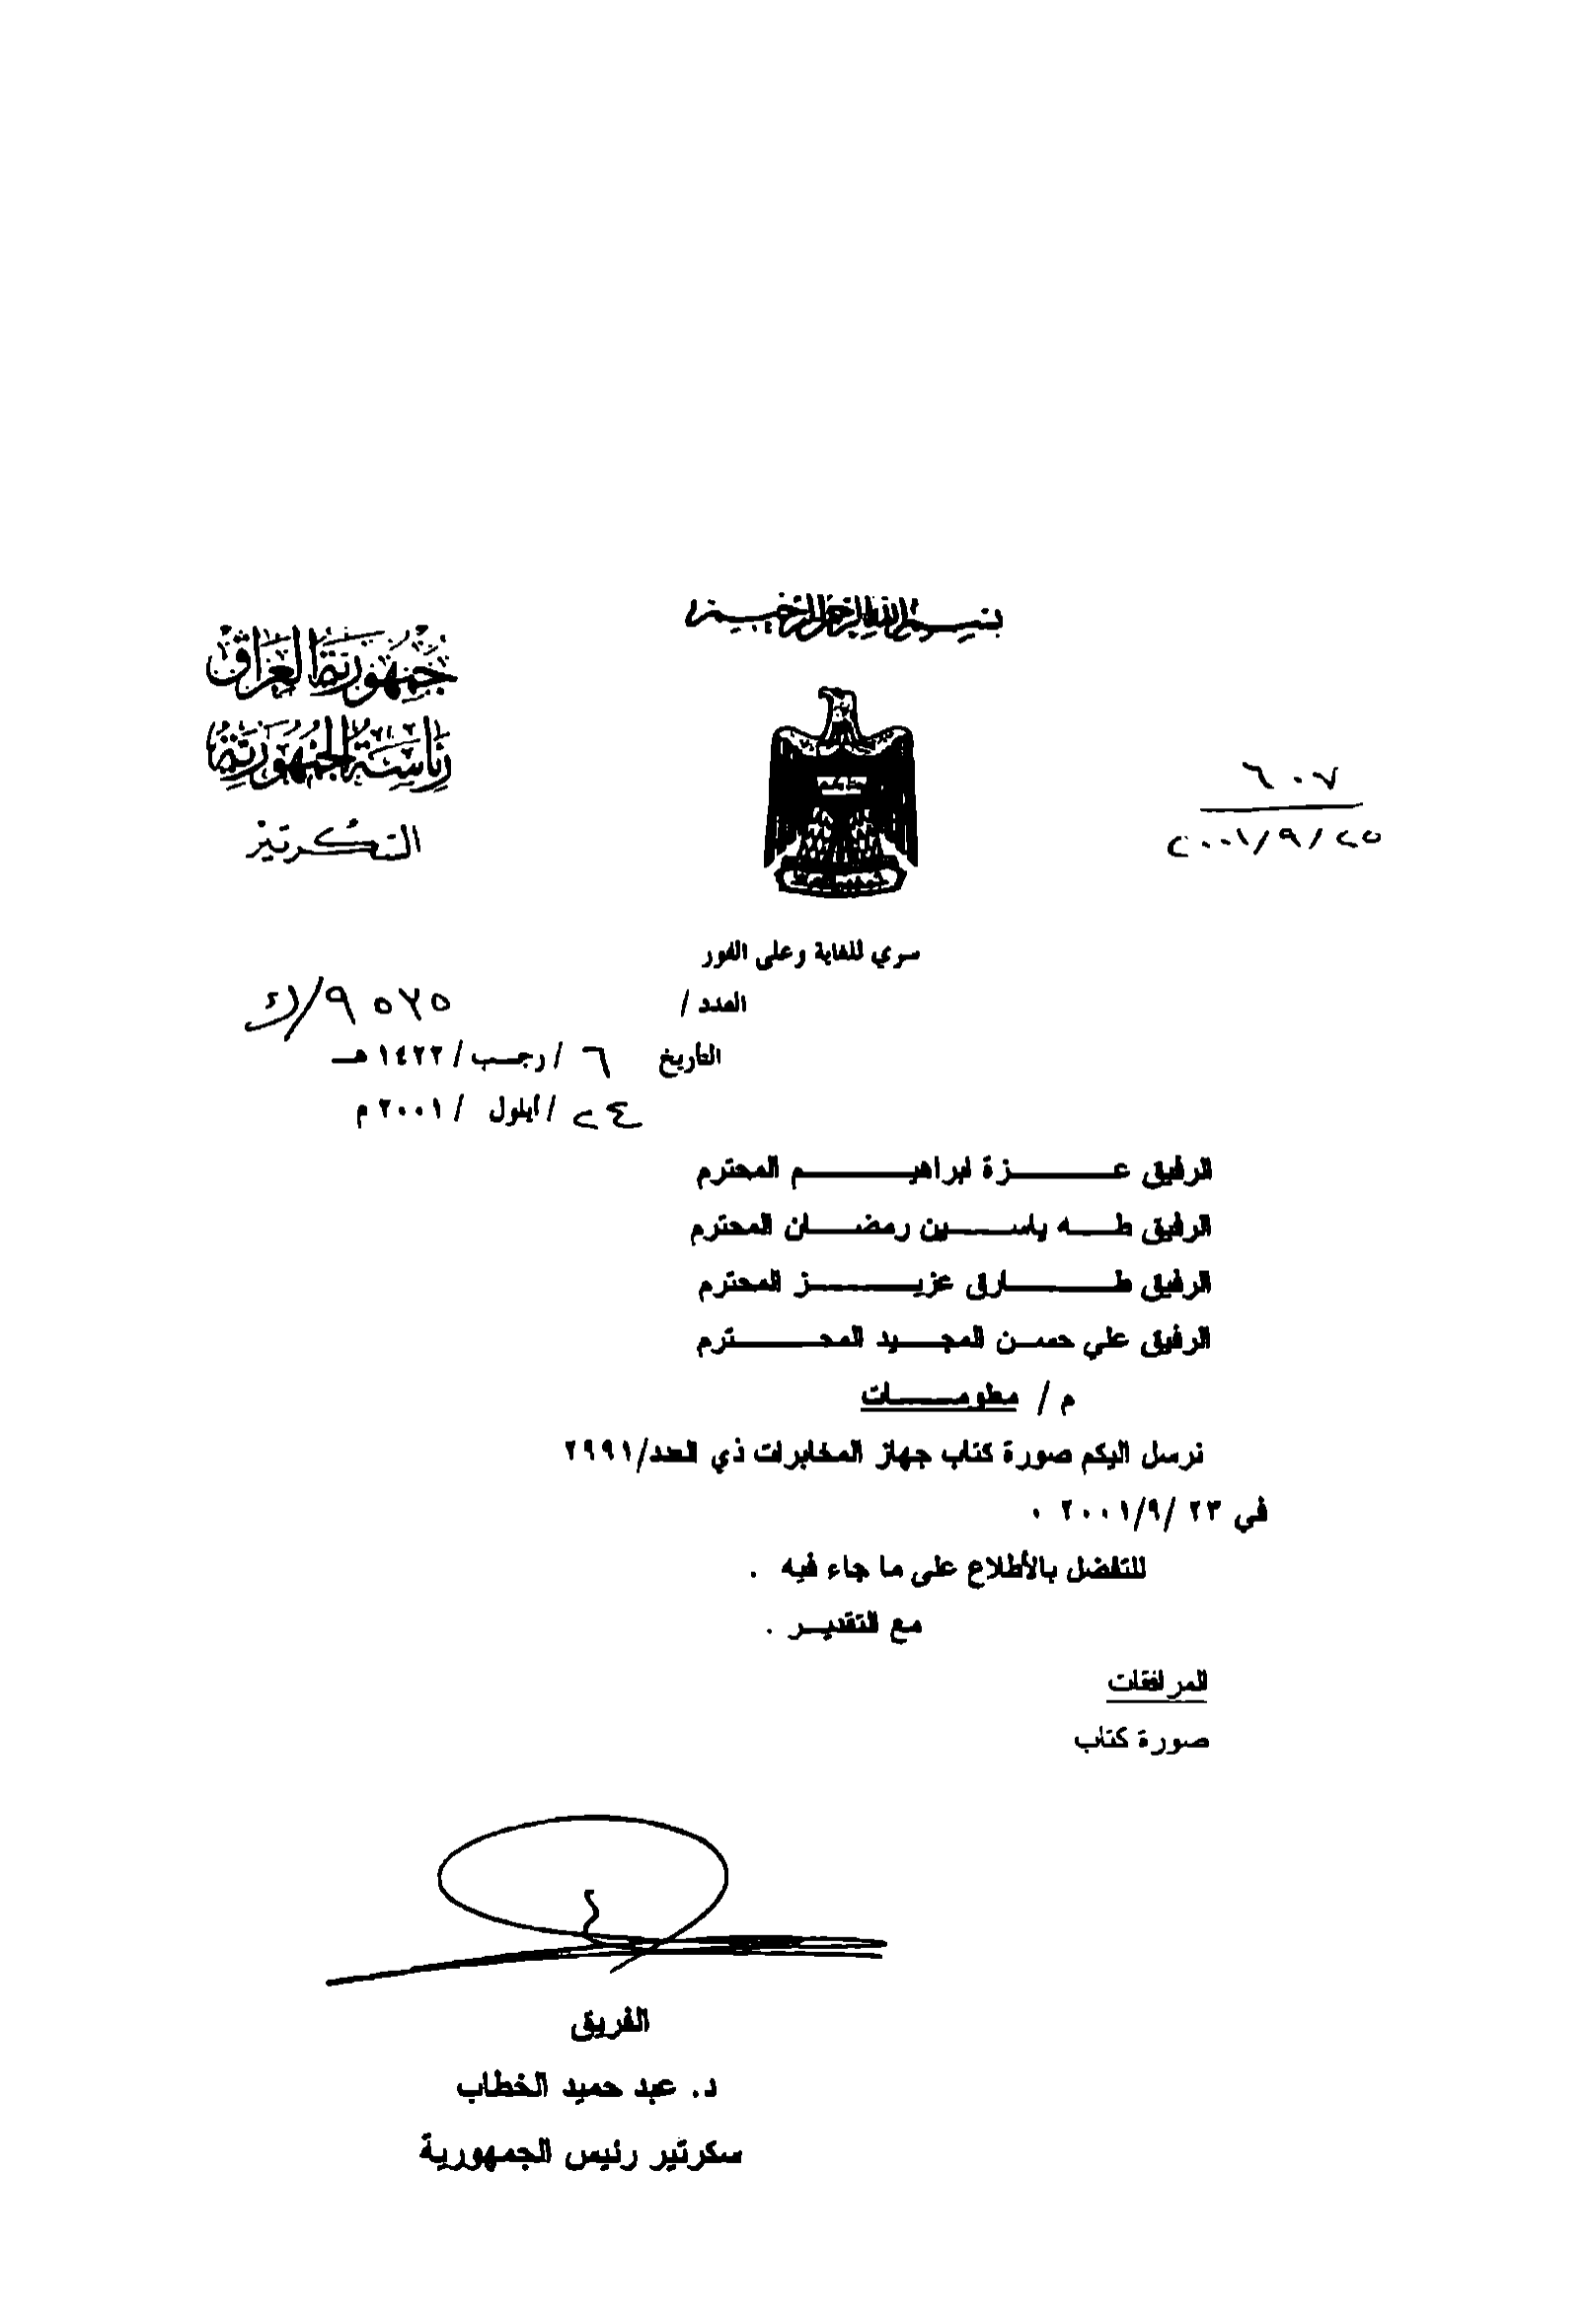 بسم الله الرحمن الرحيم
جمهورية العراق
رئاسة الجمهورية
السكرتير
٦٠٧
٢٠٠١/٩/٢٥
سري للغاية وعلى الفور
العدد / ٩٥٦٥/ك
التاريخ ٦ / رجب / ١٤٢٢ هـ
٢٤ / أيلول / ٢٠٠١ م
الرفيق عزة ابراهيم المحترم
الرفيق طه ياسين رمضان المحترم
الرفيق طارق عزيز المحترم
الرفيق علي حسن المجيد المحترم
م / معلومات
نرسل اليكم صورة كتاب جهاز المخابرات ذي العدد/٢٩٩١
في ٢٣ /٢٠٠١/٩ .
للتفضل بالأطلاع على ما جاء فيه .
مع التقدير .
المرافقات
صورة كتاب
الفريق
د. عبد حميد الخطاب
سكرتير رئيس الجمهورية